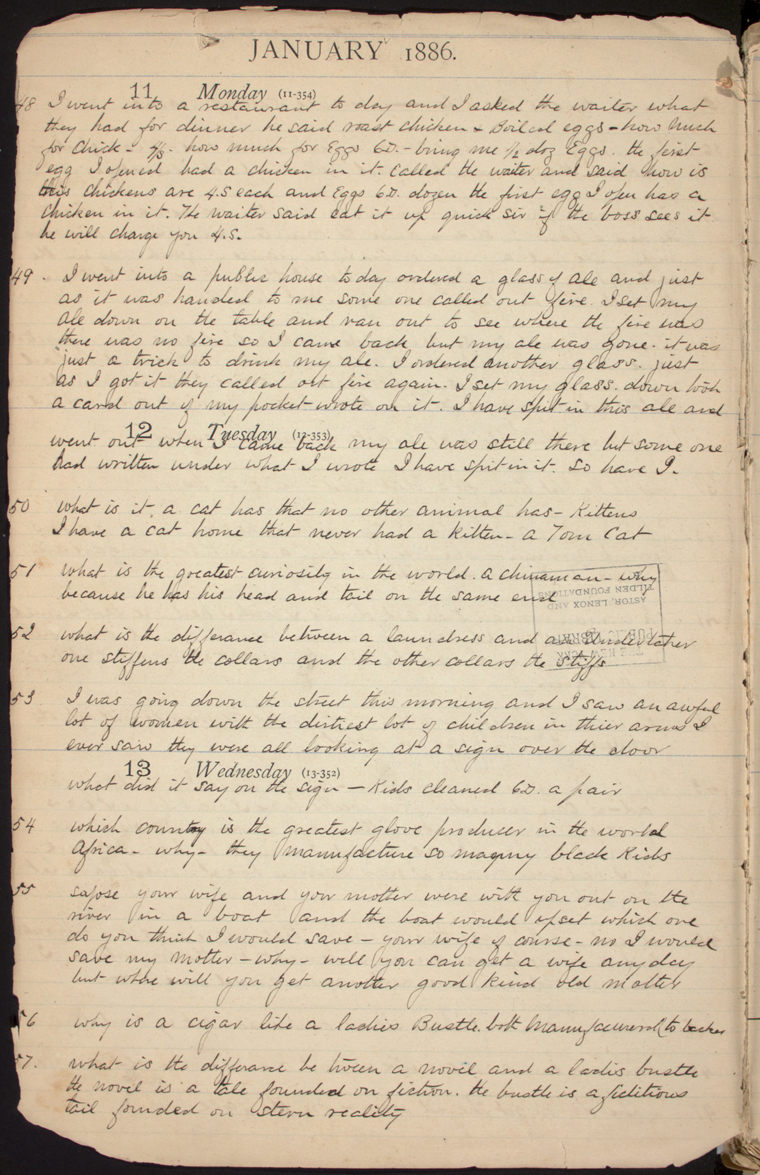 JANUARY 1886.
11 Monday (11-354)
48 I went into a restaurant to day and I asked the waiter what
they had for dinner he said roast chicken & Boiled eggs - how much
for chick - 4/s. how much for Eggs 6D. - bring me 1/2 doz Eggs. the first
egg I opened had a chicken in it. called the waiter and said how is
this chickens are 4.S each and Eggs 6.D. dozen the first egg I open has a
chicken in it. The waiter said eat it up quick sir if the boss sees it
he will charge you 4.S.
49. I went into a public house to day ordered a glass of ale and just
as it was handed to me some one called out fire. I set my
ale down on the table and ran out to see where the fire was
there was no fire so I came back but my ale was gone. it was
just a trick to drink my ale. I ordered another glass. just
as I got it they called out fire again. I set my glass. down took
a card out of my pocket wrote on it. I have spit in this ale and
12 Tuesday (12-353)
went out when I came back my ale was still there but some one
had written under what I wrote I have spit in it. So have I.
50 what is it. a cat has that no other animal has - Kittens
I have a cat home that never had a Kitten - a Tom Cat
51 what is the greatest curiosity in the world. a chinaman - why
because he has his head and tail on the same end
ASTOR, LENOX AND
TILDEN FOUNDATIONS
52 what is the differance between a laundress and an Undertaker
THE NEW YORK
PUBLIC LIBRARY
one stiffens the collars and the other collars the stiffs
53 I was going down the street this morning and I saw an awful
lot of women with the dirtiest lot of children in thier arms I
ever saw they were all looking at a sign over the door
13 Wednesday (13-352)
what did it say on the sign - Kids cleaned 6D. a pair
54 which country is the greatest glove producer in the world
Africa - why - they manufacture so many black Kids
55 sapose your wife and your mother were with you out on the
river in a boat and the boat would upset which one
do you think I would save - your wife of course - no I would
save my mother - why - well you can get a wife any day
but where will you get another good kind old mother
56 why is a cigar like a ladies Bustle. both to
57. what is the differance be tween a novel and a ladis bustle
the novel is a tale founded on fiction. the bustle is a fictitious
tail founded on stern reality